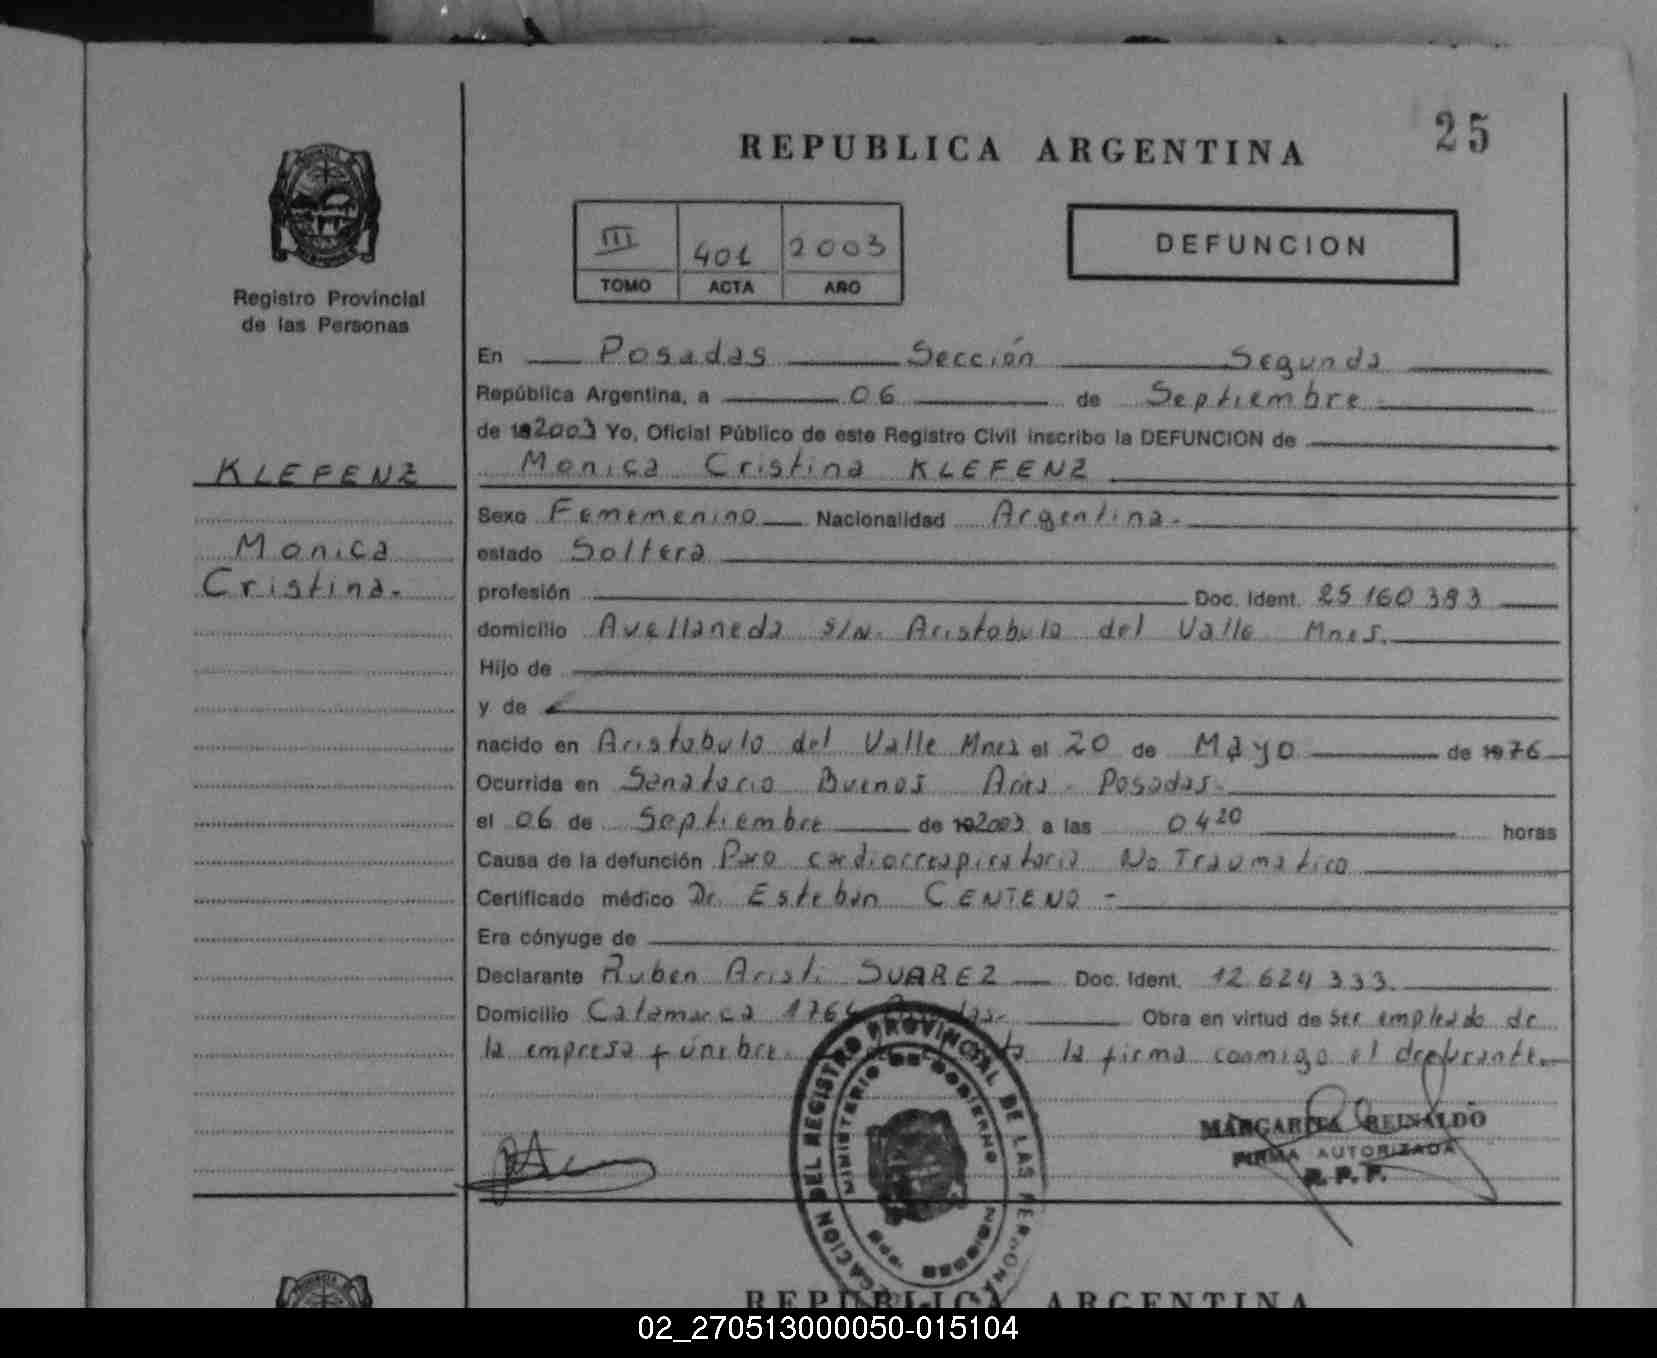 25
REPUBLICA ARGENTINA
III 401 2003
TOMO ACTA AÑO
DEFUNCION
Registro Provincial
de las Personas
En Posadas Sección Segunda
República Argentina, a 06 de Septiembre
de 192003 Yo, Oficial Público de este Registro Civil inscribo la DEFUNCION de
KLEFENZ
Monica Cristina KLEFENZ
Sexo Fememenino Nacionalidad Argentina.
Monica
estado Soltera
Cristina.
profesión Doc. Ident. 25 160 393
domicilio Avellaneda S/N. Aristobulo del Valle Mnes.
Hijo de
y de
nacido en Aristobulo del Valle Mnes el 20 de Mayo de 1976
Ocurrida en Sanatorio Buenos Aires Posadas.
el 06 de Septiembre de 192003 a las 04 20 horas
Causa de la defunción Paro cardiorrespiratorio No Traumatico
Certificado médico Dr. Esteban CENTENO -
Era cónyuge de
Declarante Ruben Aristi SUAREZ Doc. Ident. 12.624 333.
Domicilio Catamarca Obra en virtud de Ser empleado de
la empresa fúnebre. la firma conmigo el declarante.
DEL REGISTRO PROVINCIAL DE LAS PERSONAS
MINISTERIO DE GOBIERNO
MISIONES
MARGARITA REINALDO
FIRMA AUTORIZADA
R. P. P.
REPUBLICA ARGENTINA
02_270513000050-015104